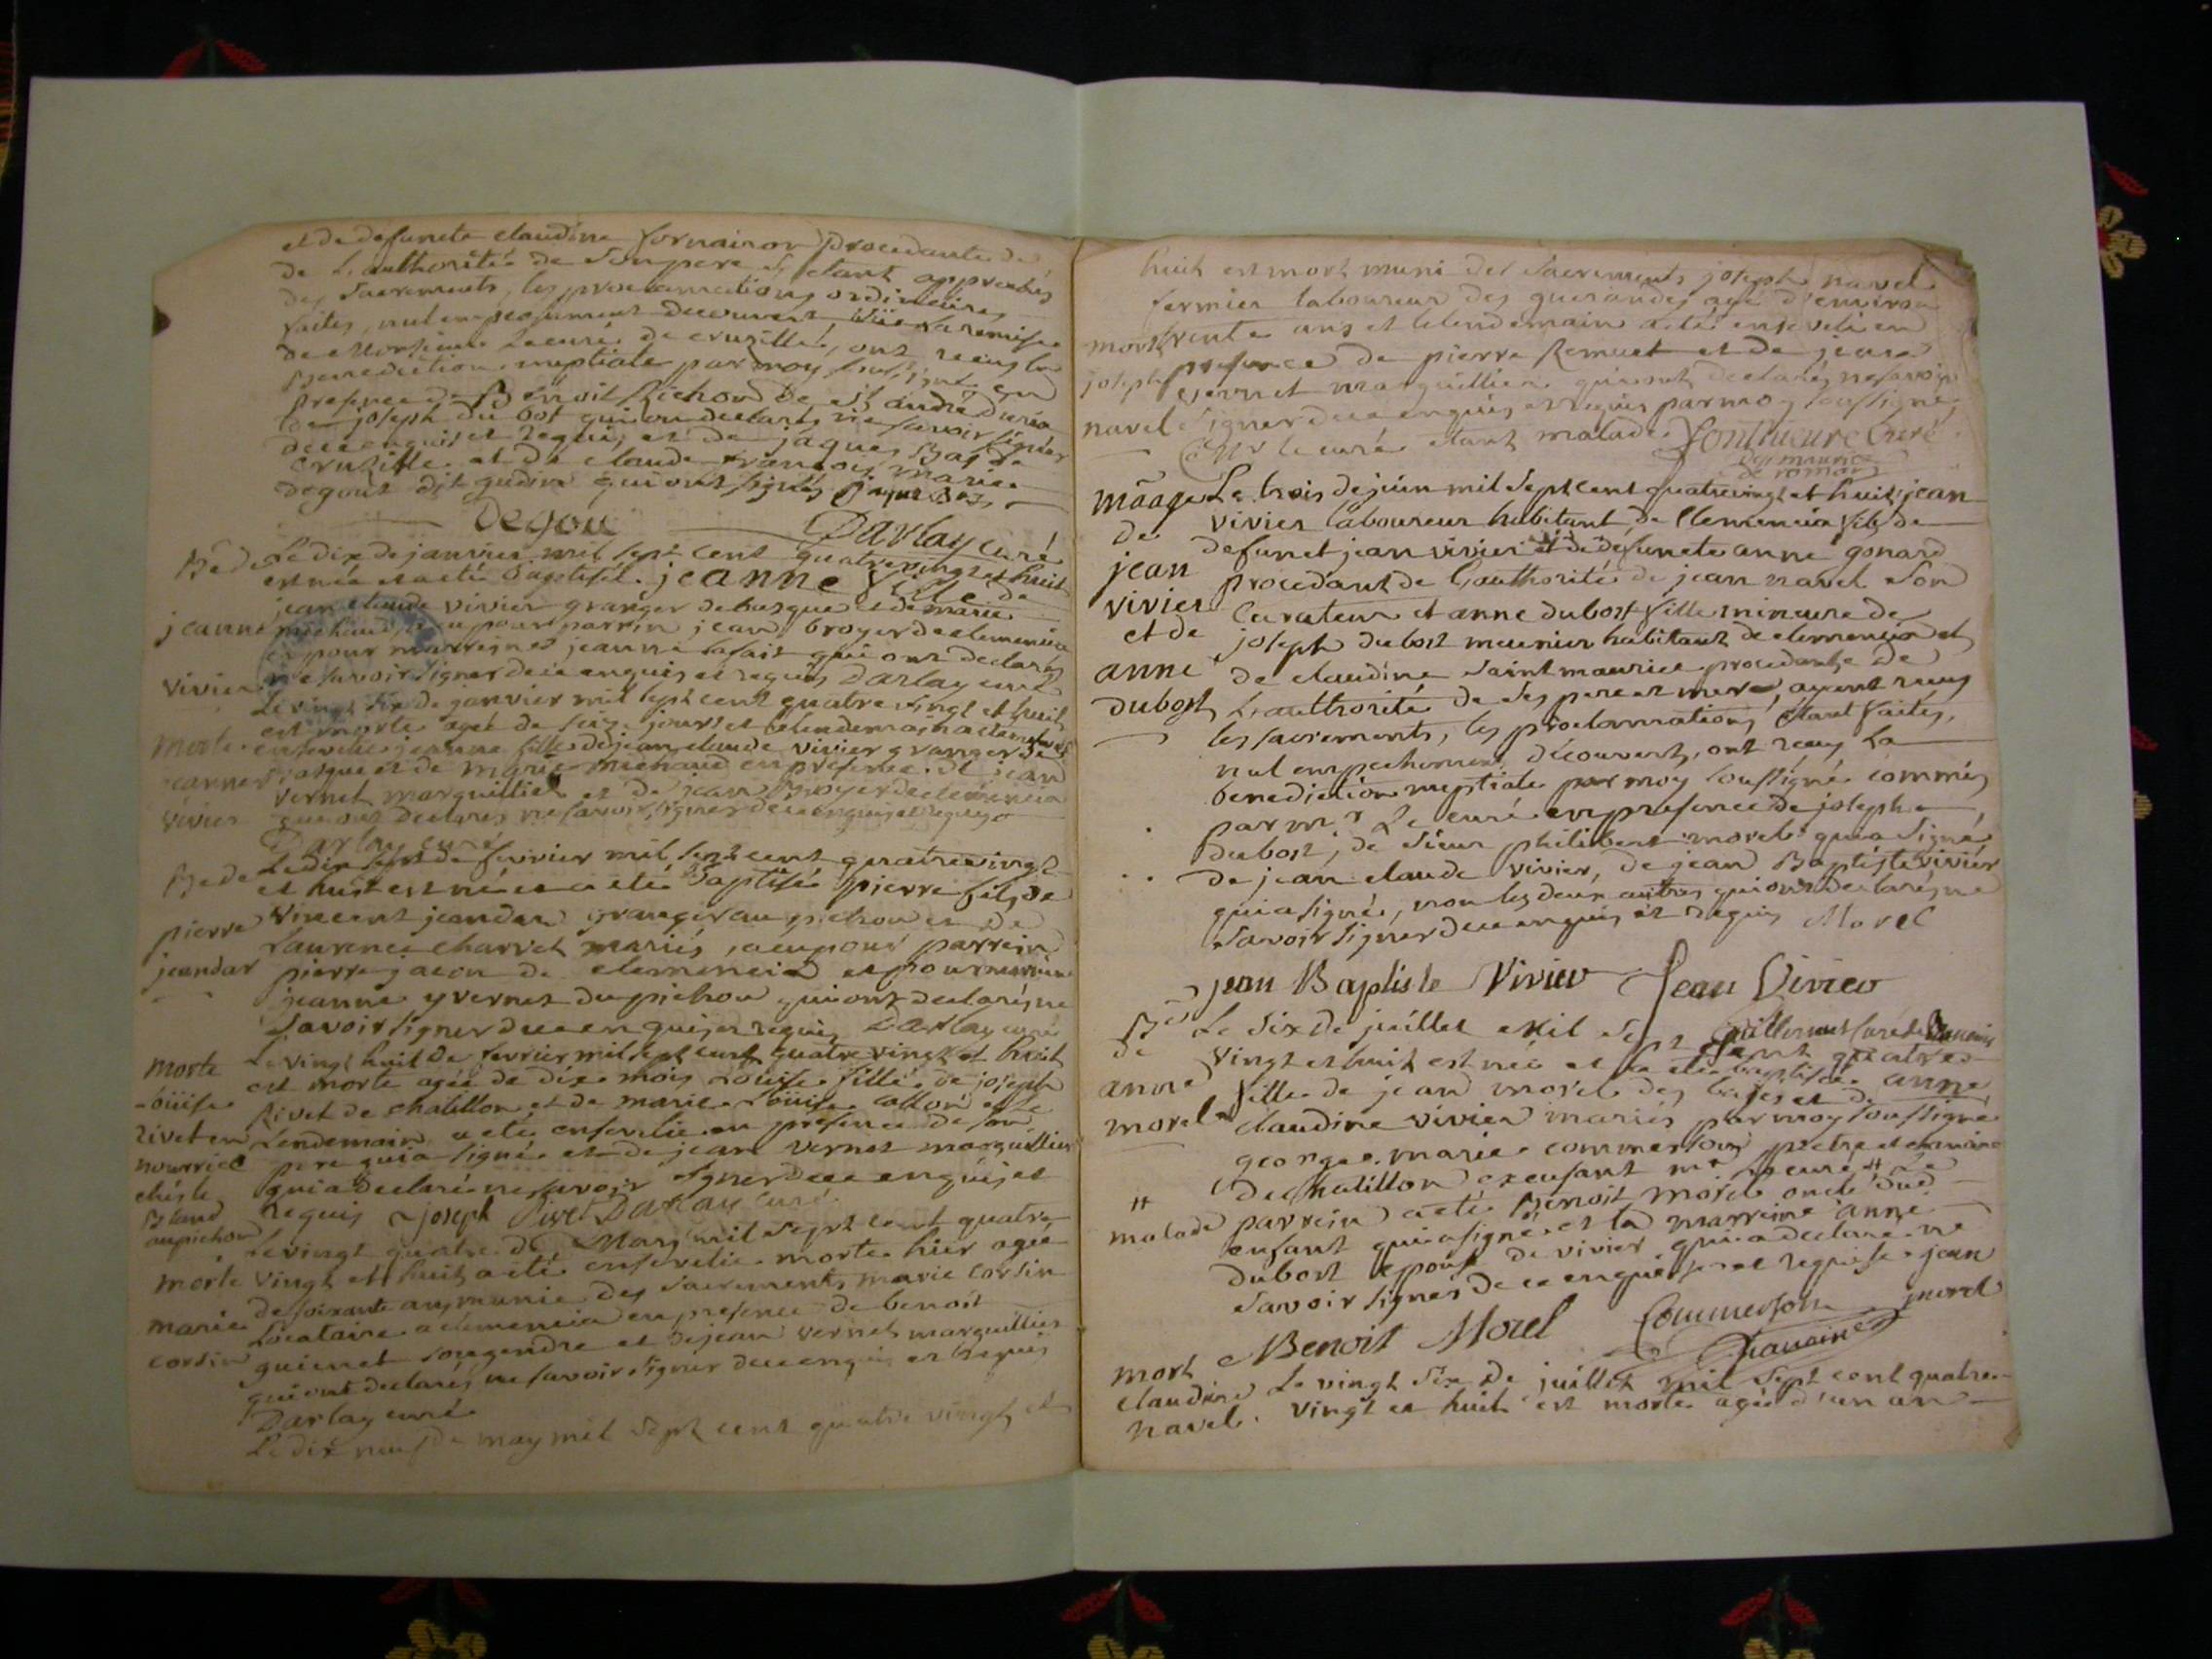 et de defuncte claudine fornairon procedante de
de L'authoritée de Son pere S, etant approchés
des Sacrements, les proclamations ordinaires
faites, nul empechement decouvert, vüe la remise
de Monsieur Le curé de cruzille, ont reçus la
Benediction nuptiale par moy Soussigné en
presence de Benoit Richond de St andré
de joseph du bost qui ont declarés ne savoir signer
de ce enquis et requis et de jaques Bas de
cruzille et de claude francois marie
degout dit gudin qui ont signés jaque Bas
Degou Darlay curé
Bê de Le dix de janvier mil sept cent quatrevingt et huit
est née et a été baptisée jeanne fille de
jean claude vivier granger de basque et de marie
jeanne michaud, a eu pour parrin jean broyer de clemencia
et pour marreine jeanne lafait qui ont declarés
vivier ne savoir signer de ce enquis et requis Darlay curé
Le vingt six de janvier mil sept cent quatre vingt et huit
est morte agée de seize jours et le lendemain a été
morte ensevelie jeanne fille de jean claude vivier granger de
jeanne basque et de marie michaud en presence de jean
vernet marguillier et de jean Broyer de clemencia
vivier qui ont declarés ne savoir signer de ce enquis et requis
Darlay curé
Bê de Le dix sept de fevrier mil sept cent quatrevingt
et huit est né et a eté Baptisé pierre fils de
pierre Vincent jeandar granger au pichou et de
Laurence charvet mariés, a eu pour parrein
jeandar pierre jacon de clemencia et pour marreine
jeanne yvernet du pichou qui ont declarés ne
savoir signer de ce enquis et requis Darlay curé
morte Le vingt huit de fevrier mil sept cent quatre vingt et huit
est morte agée de dix mois Loüise fille de joseph
-oüise Rivet de chatillon et de marie Loüise et Le
rivet en Lendemain a été ensevelie en presence de son
nourrice pere qui a signé et de jean vernet marguillier
chés le qui a declaré ne savoir signer de ce enquis et
Bland requis joseph Rivet Darlay curé
au pichou Le vingt quatre de Mars mil sept cent quatre
morte vingt et huit a eté ensevelie morte hier agée
marie de soixante ans munie des sacrements marie corsin
Locataire a clemencia en presence de benoit
corsin guienet son gendre et de jean vernet marguillier
qui ont declarés ne savoir signer de ce enquis et requis
Darlay curé
Le dix neuf de may mil sept cent quatre vingt et
huit est mort muni des Sacrements joseph navel
fermier laboureur des guerandes agé d'environ
mort trente ans et le lendemain a été enseveli en
joseph presence de pierre Remuet et de jean
yvernet marguillier qui ont declarés ne savoir
navel signer de ce enquis et requis par moy soussigné
Mr le curé etant malade fontvieure Curé
de st maurice
de romans
mãage Le trois de juin mil Sept cent quatrevingt et huit, jean
de vivier laboureur habitant de Clemencia fils de
defunct jean vivier et de defuncte anne gonard
jean procedant de L'authorité de jean navel Son
vivier Curateur et anne dubost fille mineure de
et de joseph dubost meunier habitant de clemencia et
anne de claudine Saint maurice procedante de
dubost L'authorité de ses pere et mere, ayant reçus
les sacrements, les proclamations etant faites,
nul empechement decouvert, ont reçus la
benediction nuptiale par moy soussigné commis
par mr Le curé en presence de joseph
dubost, de sieur philibert morel qui a signé
de jean claude vivier, de jean Baptiste vivier
qui a signé, non les deux autres qui ont declarés ne
savoir signer de ce enquis et requis Morel
jean Baptiste Vivier Jean Vivier
Bê Le Six de juillet Mil Sept cent quatre
de vingt et huit est née et a été baptisée anne
anne fille de jean morel des et de
morel claudine vivier mariés par moy soussigné
george marie commerson pretre et
de chatillon en enfant mr Le curé # Le
# malade parrein a été Benoit morel oncle dud
enfant qui a signé et la marreine anne
dubost epouse de vivier qui a declaré ne
savoir signer de ce enquise et requise jean
Benoit Morel Commerson morel
mort
claudine Le vingt Six de juillet mil sept cent quatre
navel. vingt et huit est morte agée d'un an